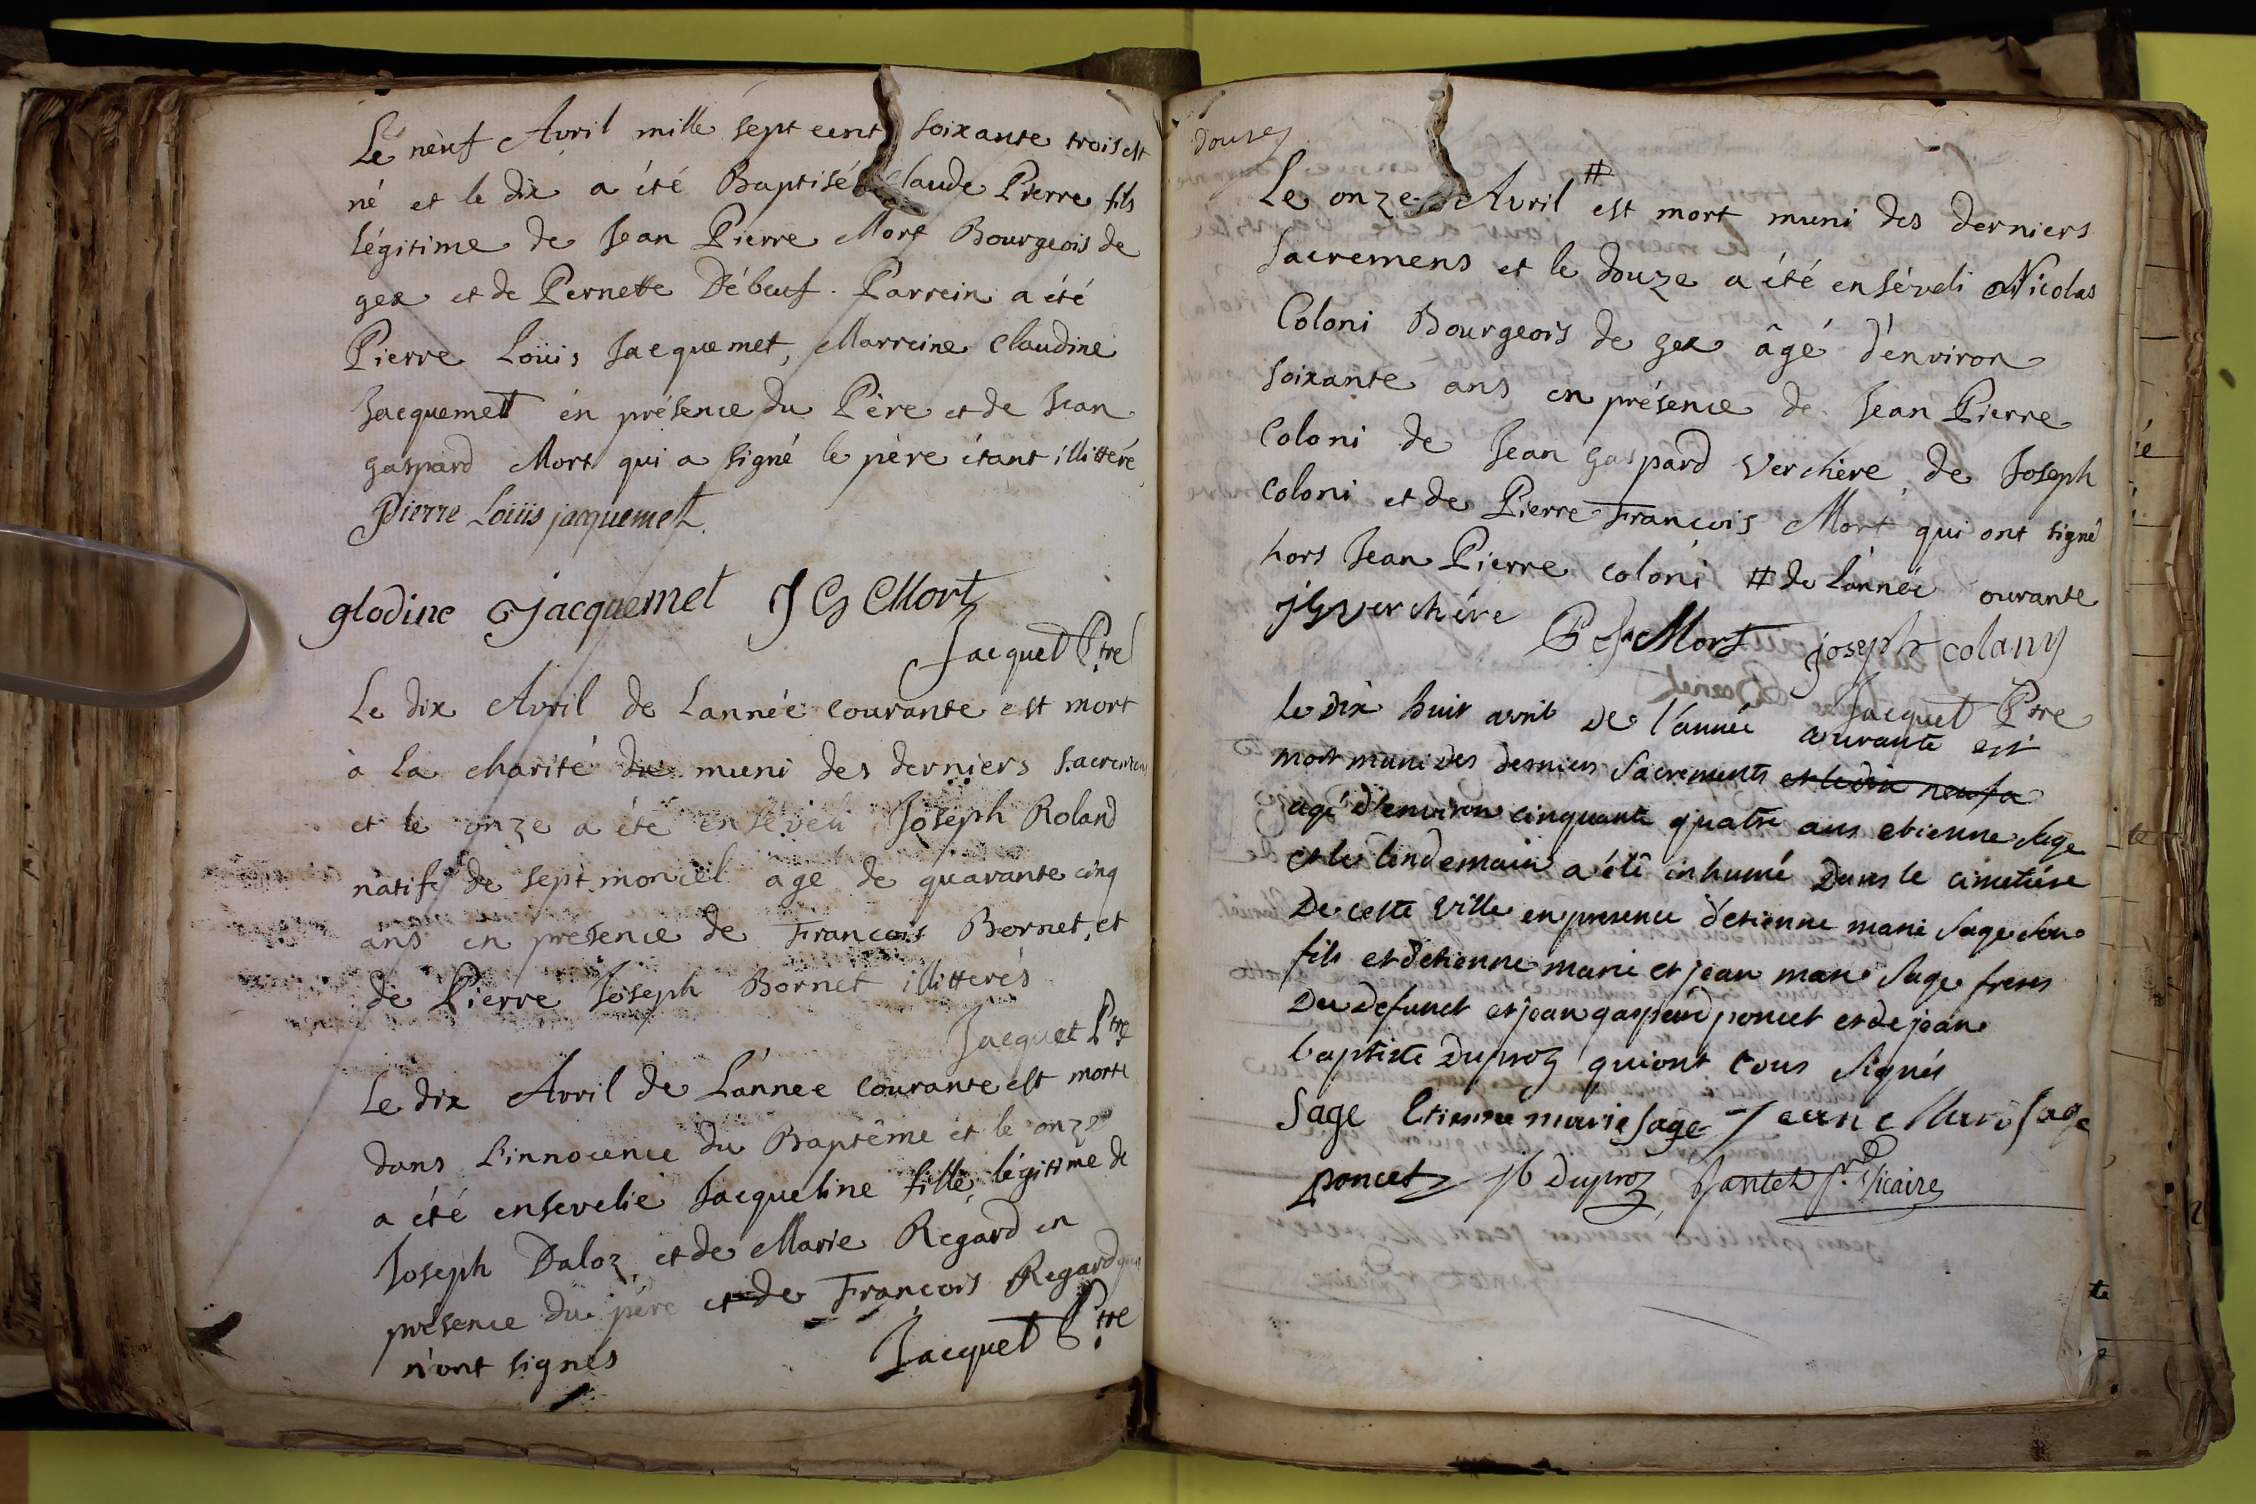 Le neuf Avril mille sept cent soixante trois est
né et le dix a été Baptisé Claude Pierre fils
légitime de Jean Pierre Mort Bourgeois de
gex et de Pernette Débeuf. Parrein a été
Pierre Loüis Jacquemet, Marreine Claudine
Jacquemett en présence du Père et de Jean
gaspard Mort qui a signé le père étant illittéré
Pierre Loüis jacquemett
glodine jacquemet J G Mort
Jacquet Ptre
Le dix Avril de Lannée courante est mort
à la charité muni des derniers Sacremens
et le onze a été enséveli Joseph Roland
natif de septmoncel agé de quarante cinq
ans en présence de François Bornet, et
de Pierre Joseph Bornet illitterés
Jacquet Ptre
Le dix Avril de L'année courante est morte
dans L'innocence du Baptême et le onze
a été ensevelie Jacqueline fille légitime de
Joseph Daloz et de Marie Regard en
présence du père et de François Regard qui
n'ont signés
Jacquet Ptre
douze
Le onze Avril # est mort muni des derniers
Sacremens et le douze a été enséveli Nicolas
Coloni Bourgeois de gex âgé d'environ
soixante ans en présence de Jean Pierre
Coloni de Jean Gaspard Verchère de Joseph
coloni et de Pierre François Mort qui ont signé
hors Jean Pierre coloni # de l'année ourante
jgverchére P f Mort joseph colany
Jacquet Ptre
le dix huit avril de l'année courante est
mort muni des derniers Sacrements et le dix neuf a
agé d'environ cinquante quatre ans etienne Sage
et le lendemain a été inhumé dans le cimetière
De cette ville en presence d'etienne marie Sage Son
fils et d'etienne marie et jean marie Sage freres
Du defunct et jean gaspard poncet et de jean
baptiste Duproz qui ont tous Signés
Sage Etienne marie Sage Jean Marie Sage
poncet jb Duproz Jantet Vicaire